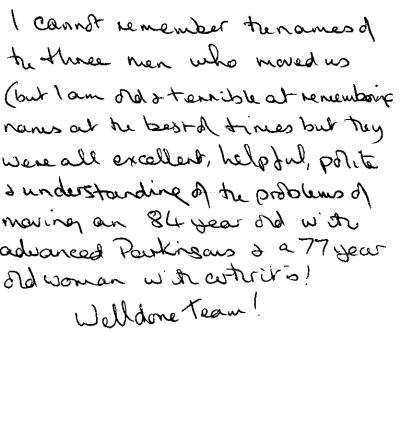 I cannot remember the names of
the three men who moved us
(but I am old & terrible at remembering
names at the best of times but they
were all excellent, helpful, polite
& understanding of the problems of
moving an 84 year old with
advanced Parkinsons & a 77 year
old woman with arthritis!
Well done Team!